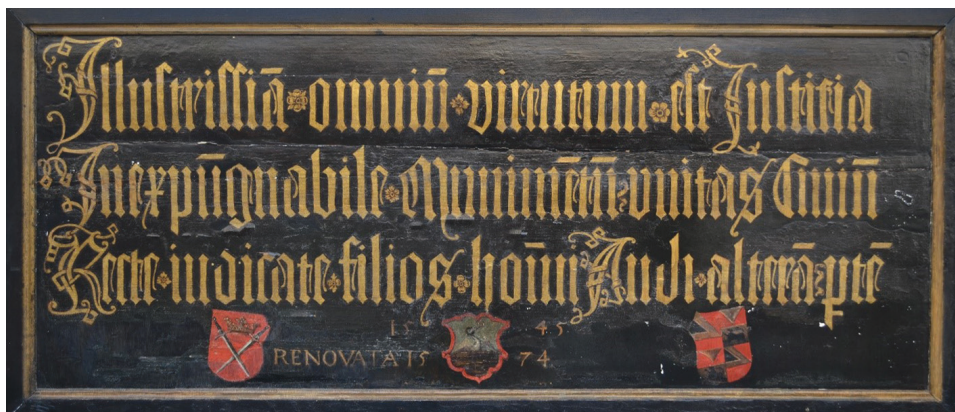 Illustrissiā omniū virtutum est Justitia
Inexpūgnabile Munimētū unitas Civiū
Recte iudicate filios homīn Audi alterā ptē
15 45
RENOVATA 15 74